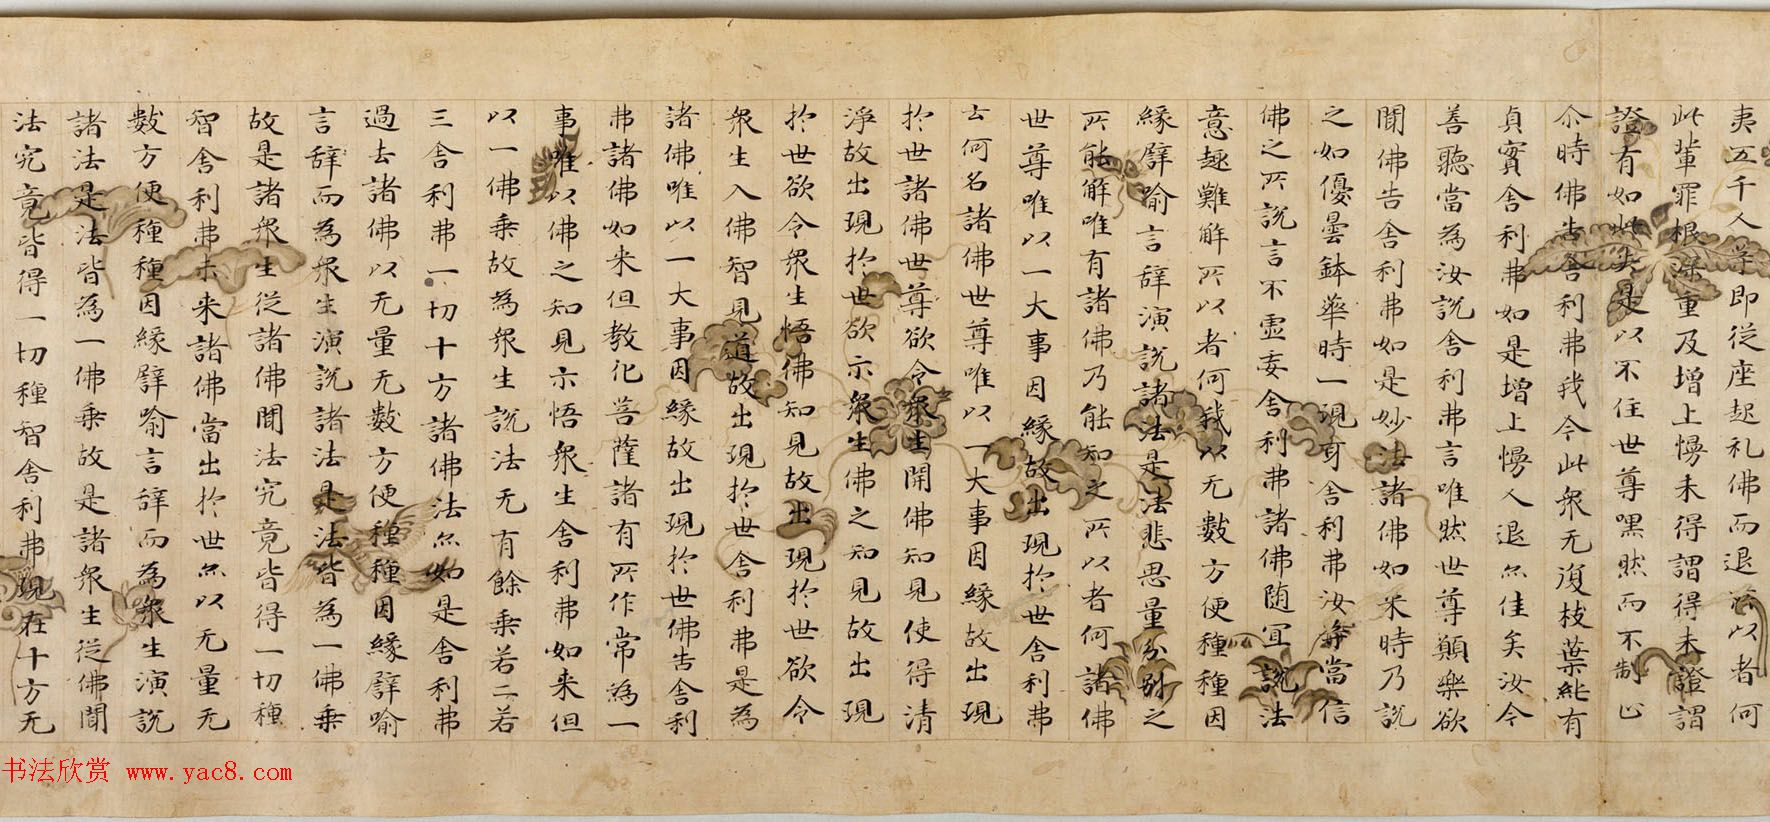 夷五千人等即從座起礼佛而退所以者何
此輩罪根深重及增上慢未得謂得未證謂
證有如此失是以不住世尊嘿然而不制止
尒時佛告舍利弗我今此衆无復枝葉純有
貞實舍利弗如是增上慢人退亦佳矣汝今
善聽當為汝說舍利弗言唯然世尊願樂欲
聞佛告舍利弗如是妙法諸佛如来時乃說
之如優曇鉢華時一現耳舍利弗汝等當信
佛之所說言不虛妄舍利弗諸佛随宜說法
意趣難解所以者何我以无數方便種種因
緣譬喻言辞演說諸法是法非思量分別之
所能解唯有諸佛乃能知之所以者何諸佛
世尊唯以一大事因緣故出現於世舍利弗
云何名諸佛世尊唯以一大事因緣故出現
於世諸佛世尊欲令衆生開佛知見使得清
淨故出現於世欲示衆生佛之知見故出現
於世欲令衆生悟佛知見故出現於世欲令
衆生入佛智見道故出現於世舍利弗是為
諸佛唯以一大事因緣故出現於世佛告舍利
弗諸佛如来但教化菩薩諸有所作常為一
事唯以佛之知見示悟衆生舍利弗如来但
以一佛乗故為衆生說法无有餘乗若二若
三舍利弗一切十方諸佛法亦如是舍利弗
過去諸佛以无量无數方便種種因緣譬喻
言辞而為衆生演說諸法是法皆為一佛乗
故是諸衆生從諸佛聞法究竟皆得一切種
智舍利弗未来諸佛當出於世亦以无量无
數方便種種因緣譬喻言辞而為衆生演說
諸法是法皆為一佛乗故是諸衆生從佛聞
法究竟皆得一切種智舍利弗現在十方无
书法欣赏 www.yac8.com